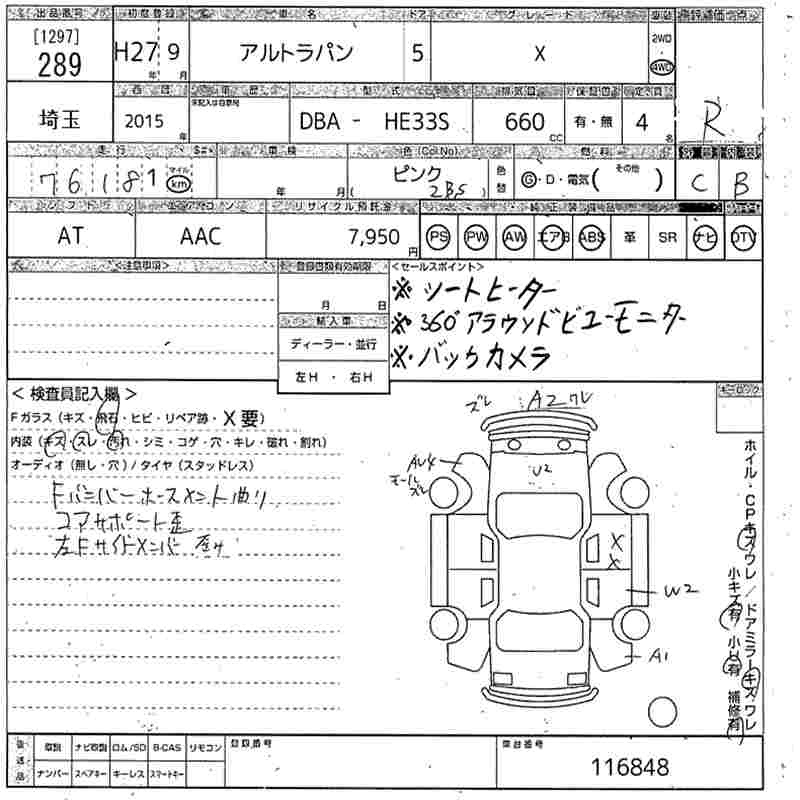 出品番号 初度登録 車名 ドア グレード 駆動 評価点
[1297]
289 H27年 9月 アルトラパン 5 X 2WD・4WD R
年式 車歴 型式 排気量 定員
埼玉 2015年 DBA - HE33S 660cc 有・無 4
走行 車検 色(Col No) 燃料
76181 マイル km 年 月 ( ピンク 2BS ) 色替 G・D・電気( その他 ) C B
シフト エアコン リサイクル預託金 純正装備品
AT AAC 7,950円 PS PW AW エアB ABS 革 SR ナビ DTV
<注意事項> 登録書類有効期限 <セールスポイント>
月 日 ※ シートヒーター
輸入車 ※ 360°アラウンドビューモニター
ディーラー・並行 ※ バックカメラ
左H ・ 右H
< 検査員記入欄 > キーロック
Fガラス (キズ・飛石・ヒビ・リペア跡・X要)
内装 (キズ・スレ・汚れ・シミ・コゲ・穴・キレ・破れ・割れ)
オーディオ (無し・穴) / タイヤ (スタッドレス)
Fバンパーホースメント曲り
コアサポート歪
左Fサイドメンバー
ズレ A2ワレ
U2
AU4
モールズレ
X
X
W2
A1
ホイル・CPキズワレ / ドアミラーキズワレ
小キズ有 小U有 補修有
後送品 取説 ナビ取説 ロム/SD B-CAS リモコン 登録番号 車台番号
ナンバー スペアキー キーレス スマートキー 116848